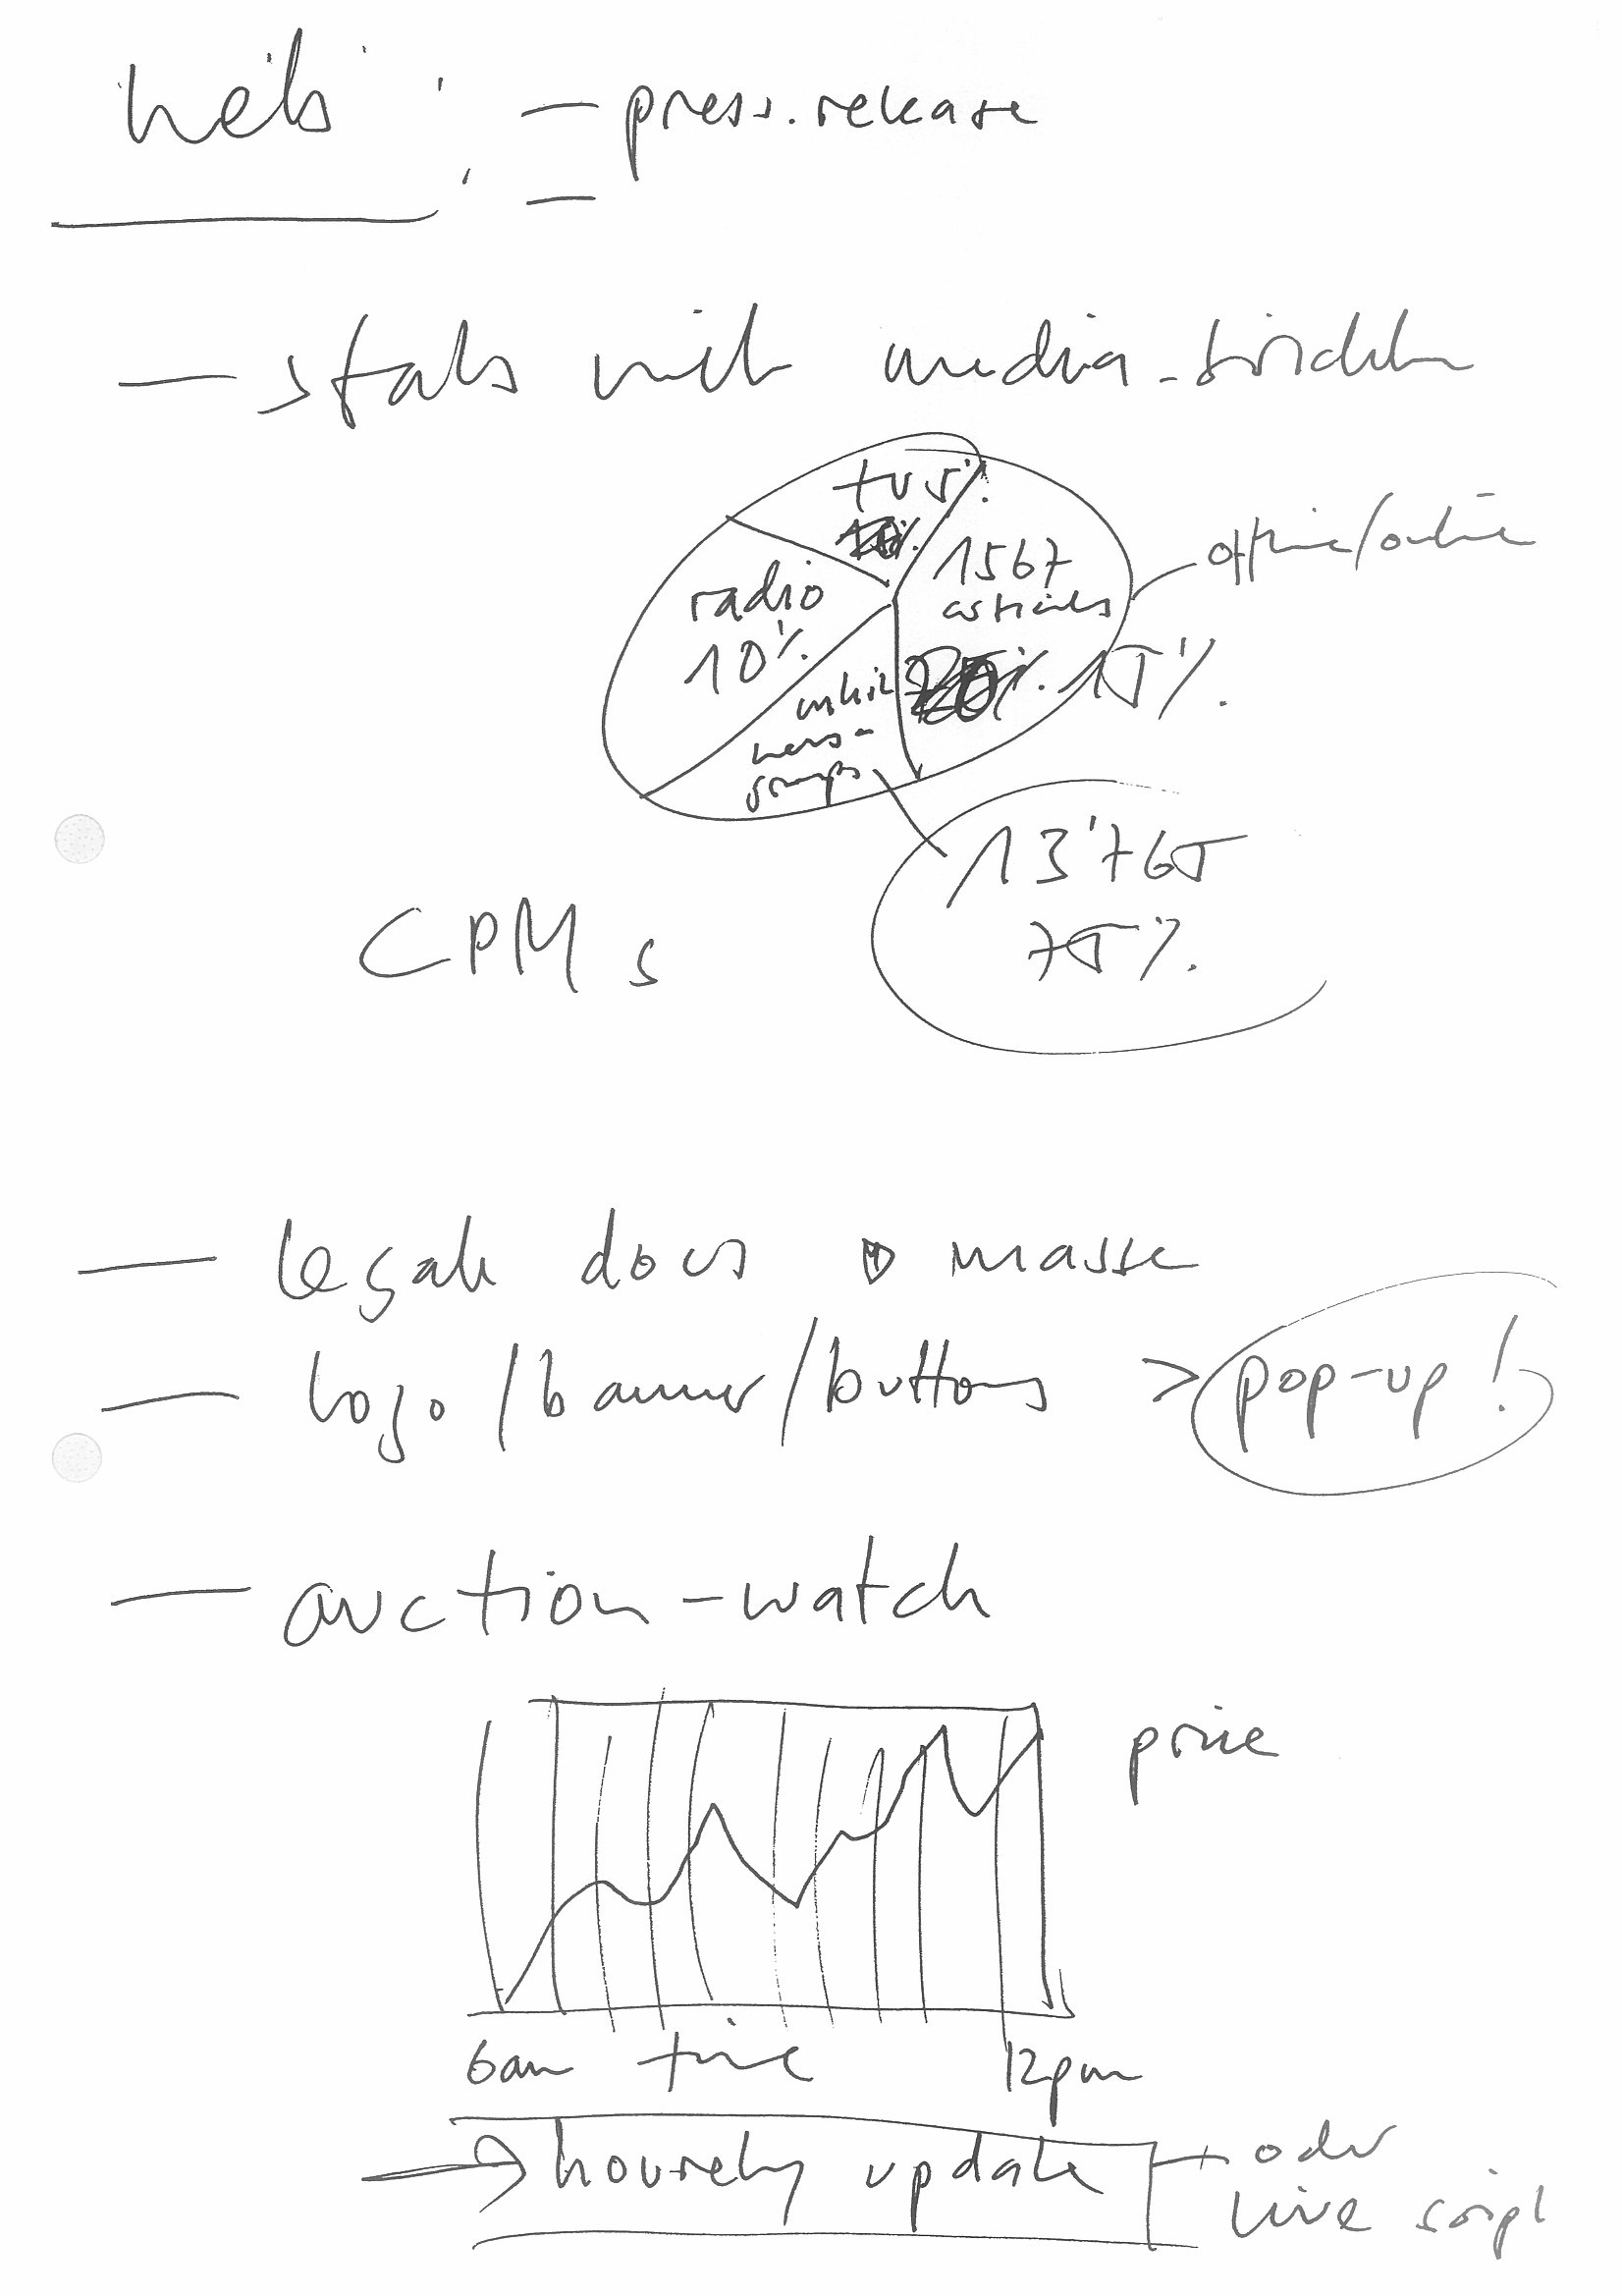 web: – press.release
–
– stats mit media-
tv 5%
1567 articles
offline/online
radio 10%
15%
news-
groups
13'765
75%
CPMs
– legale docs masse
– logo/banner/buttons > pop-up!
– auction-watch
price
6am time 12pm
→ hourely update + oder
live script